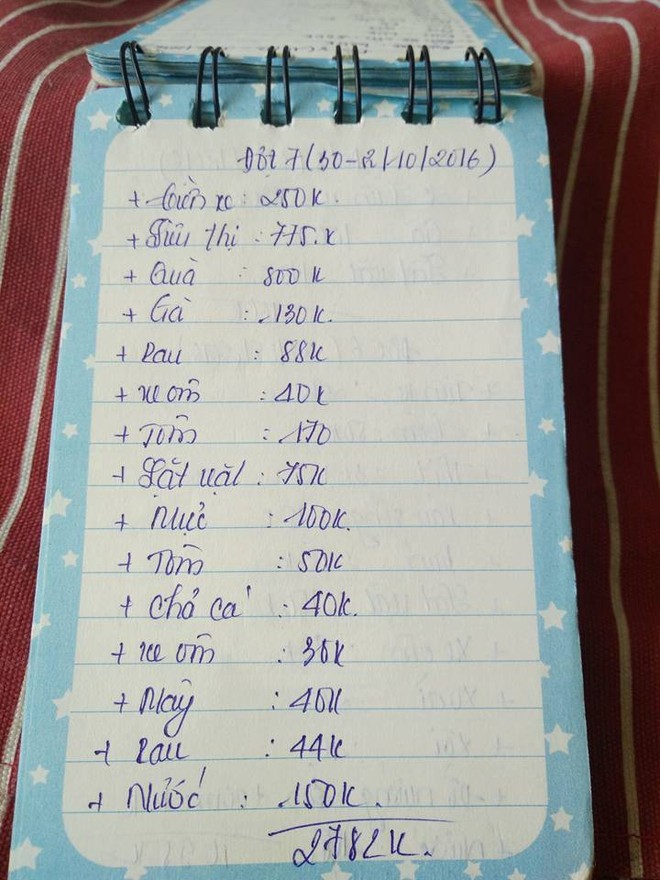 Đợt 7 (30-2/10/2016)
+ Tiền xe : 250K.
+ Siêu thị : 775.K
+ Quà : 800K
+ Gà : 130K.
+ Rau : 88K
+ xe ôm : 40K
+ Tôm : 170
+ Lặt vặt : 75K
+ Mực : 100K.
+ Tôm : 50K
+ chả cá : 40K.
+ xe ôm : 30K
+ : 40K
+ Rau : 44K
+ Nước : 150K.
2782K.